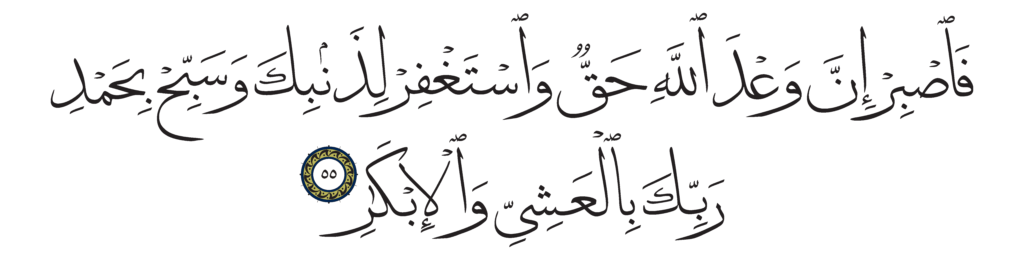 فَٱصْبِرْ إِنَّ وَعْدَ ٱللَّهِ حَقٌّ وَٱسْتَغْفِرْ لِذَنۢبِكَ وَسَبِّحْ بِحَمْدِ
رَبِّكَ بِٱلْعَشِىِّ وَٱلْإِبْكَٰرِ ٥٥